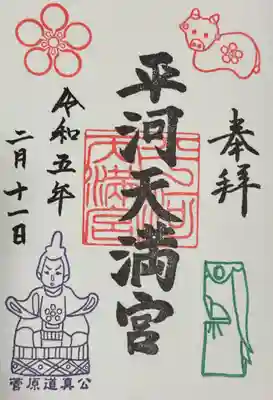 奉拝
平河天満宮
令和五年
二月十一日
菅原道真公